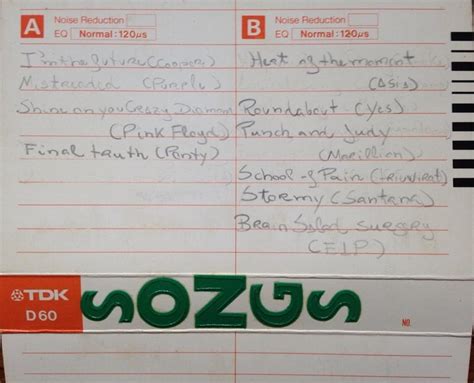 A Noise Reduction
EQ Normal:120µs
I'm the future (Cooper)
Mistreated (Purple)
Shine on you Crazy Diamond
(Pink Floyd)
Final truth (Ponty)
B Noise Reduction
EQ Normal:120µs
Heat of the moment
(Asia)
Roundabout (Yes)
Punch and Judy
(Marillion)
School of Pain (triumvirat)
Stormy (Santana)
Brain Salad surgery
(ELP)
TDK
D60
SONGS
NO.